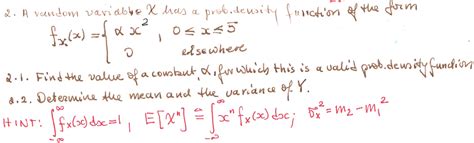 2. A random variable X has a prob. density function of the form
f_X(x) = { α x², 0 ≤ x ≤ 5
0 elsewhere
2.1. Find the value of a constant, α, for which this is a valid prob. density function
2.2. Determine the mean and the variance of Y.
HINT: ∫_{-∞}^{∞} f_X(x) dx = 1, E[X^n] ≜ ∫_{-∞}^{∞} x^n f_X(x) dx; σ_X² = m₂ - m₁²